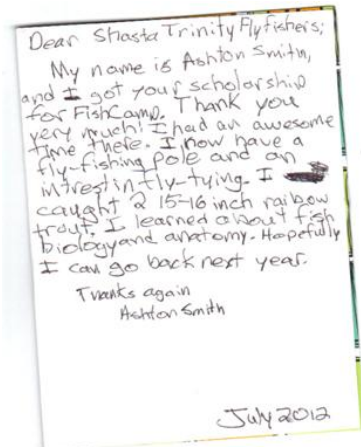 Dear Shasta Trinity Flyfishers;
My name is Ashton Smith,
and I got your scholorship
for FishCamp. Thank you
very much! I had an awesome
time there. I now have a
fly-fishing pole and an
intrest in fly-tying. I
caught 2 15-16 inch raibow
trout. I learned about fish
biology and anatomy. Hopefully
I can go back next year.
Thanks again
Ashton Smith
July 2012